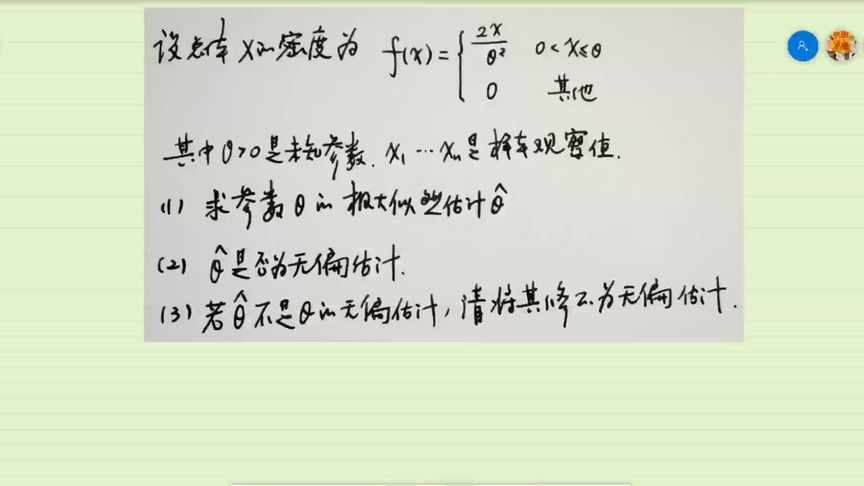 设总体X的密度为 f(x)={ 2x/θ² 0<x≤θ
0 其他
其中θ>0是未知参数. x₁…xₙ是样本观察值.
(1) 求参数θ的极大似然估计θ̂
(2) θ̂是否为无偏估计.
(3) 若θ̂不是θ的无偏估计,请将其修正为无偏估计.